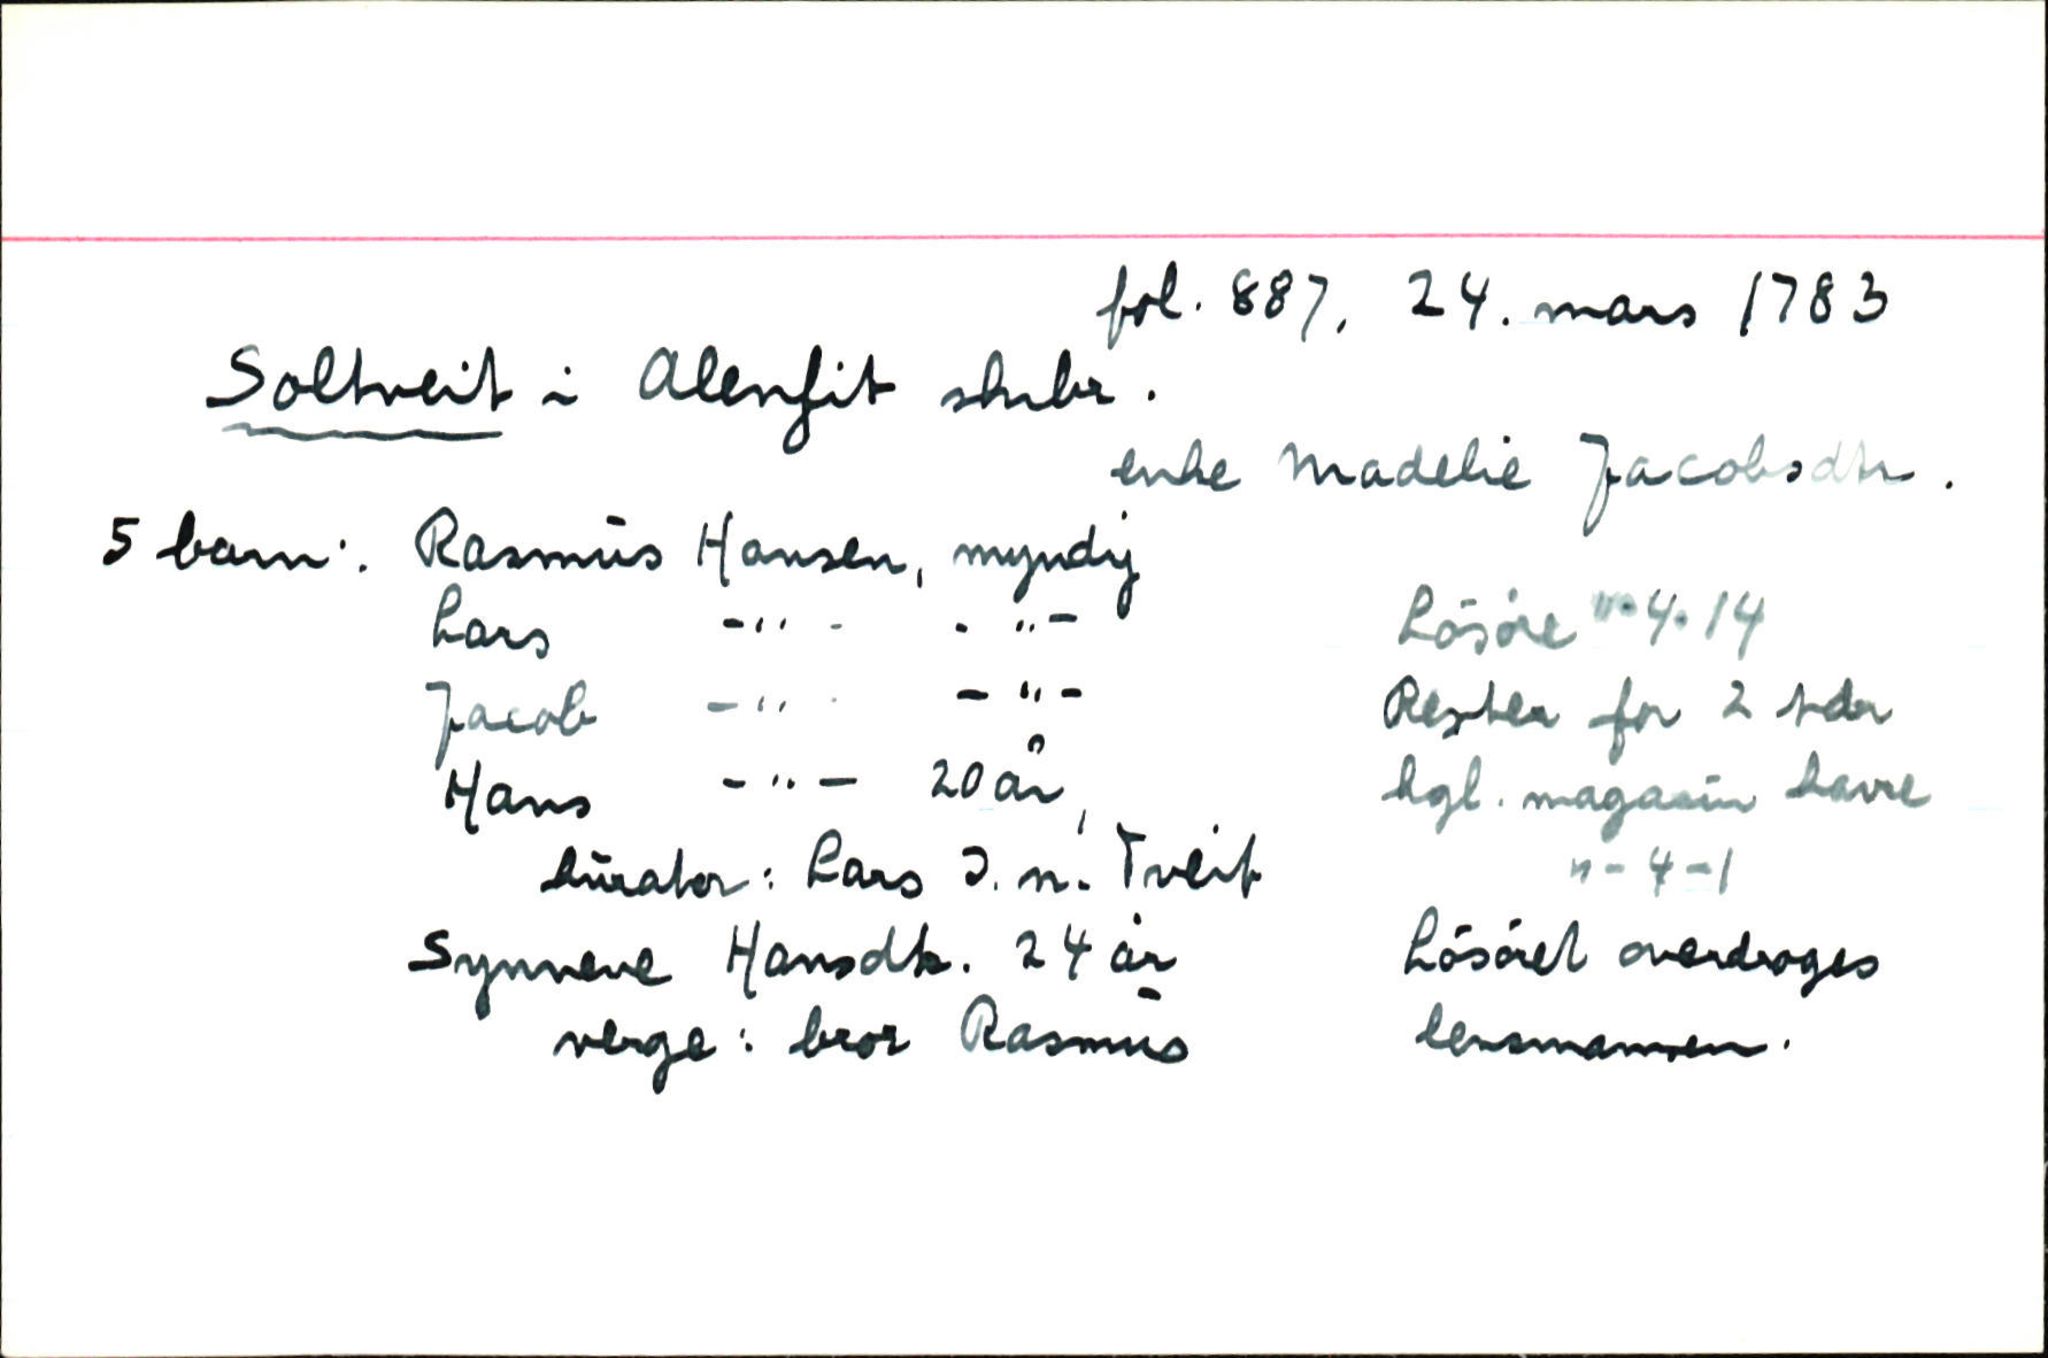 fol. 887, 24. mars 1783
Soltveit i Alenfit skibr.
enke Madelie Jacobsdtr.
5 barn: Rasmus Hansen, myndig
Lars -"- -"-
Jacob -"- -"-
Hans -"- 20 år,
kurator: Lars I. n. Tveit
Synneve Hansdtr. 24 år
verge: bror Rasmus
Lösöre "-4-14
Rester for 2 tdr
kgl. magasin havre
"-4-1
Lösöret overdroges
lensmannen.